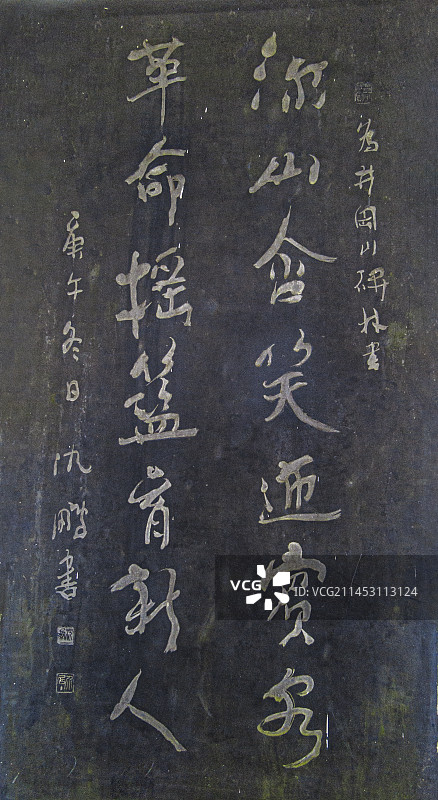 為井岡山碑林書
深山含笑迎賓客
革命摇篮育新人
庚午冬日 仇鵬書
VCG
ID: VCG211453113124